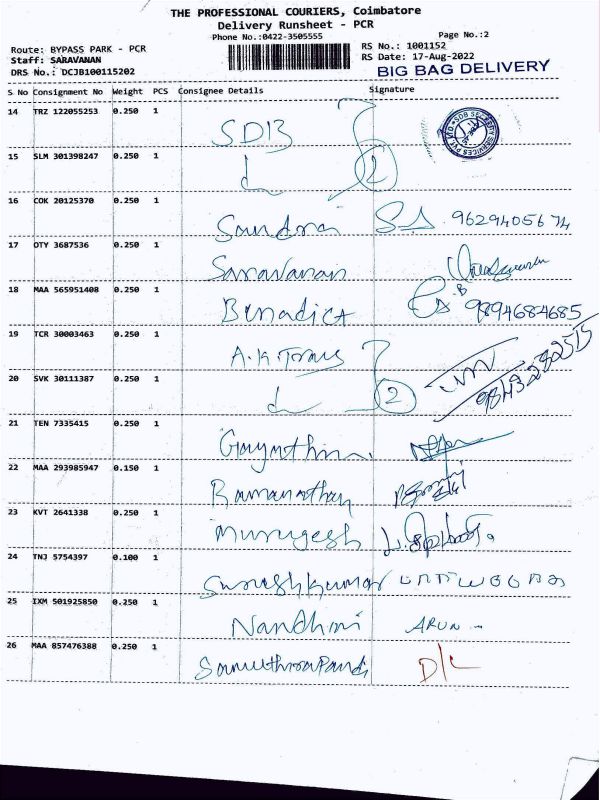 THE PROFESSIONAL COURIERS, Coimbatore
Delivery Runsheet - PCR
Phone No.:0422-3505555
Page No.:2
Route: BYPASS PARK - PCR
RS No.: 1001152
Staff: SARAVANAN
RS Date: 17-Aug-2022
DRS No.: DCJB100115202
BIG BAG DELIVERY
S No Consignment No Weight PCS Consignee Details Signature
14 TRZ 122055253 0.250 1 SDB
15 SLM 301398247 0.250 1 2
16 COK 20125370 0.250 1 9629405674
17 OTY 3687536 0.250 1 Saravanan
18 MAA 565951408 0.250 1 Benadict 9894684685
19 TCR 30003463 0.250 1 9843282515
20 SVK 30111387 0.250 1 2
21 TEN 7335415 0.250 1 Gayathri
22 MAA 293985947 0.150 1 Ramanathan
23 KVT 2641338 0.250 1 Murugesh
24 TNJ 5754397 0.100 1 Sureshkumar
25 IXM 501925850 0.250 1 Nandhini ARUN
26 MAA 857476388 0.250 1 D/L